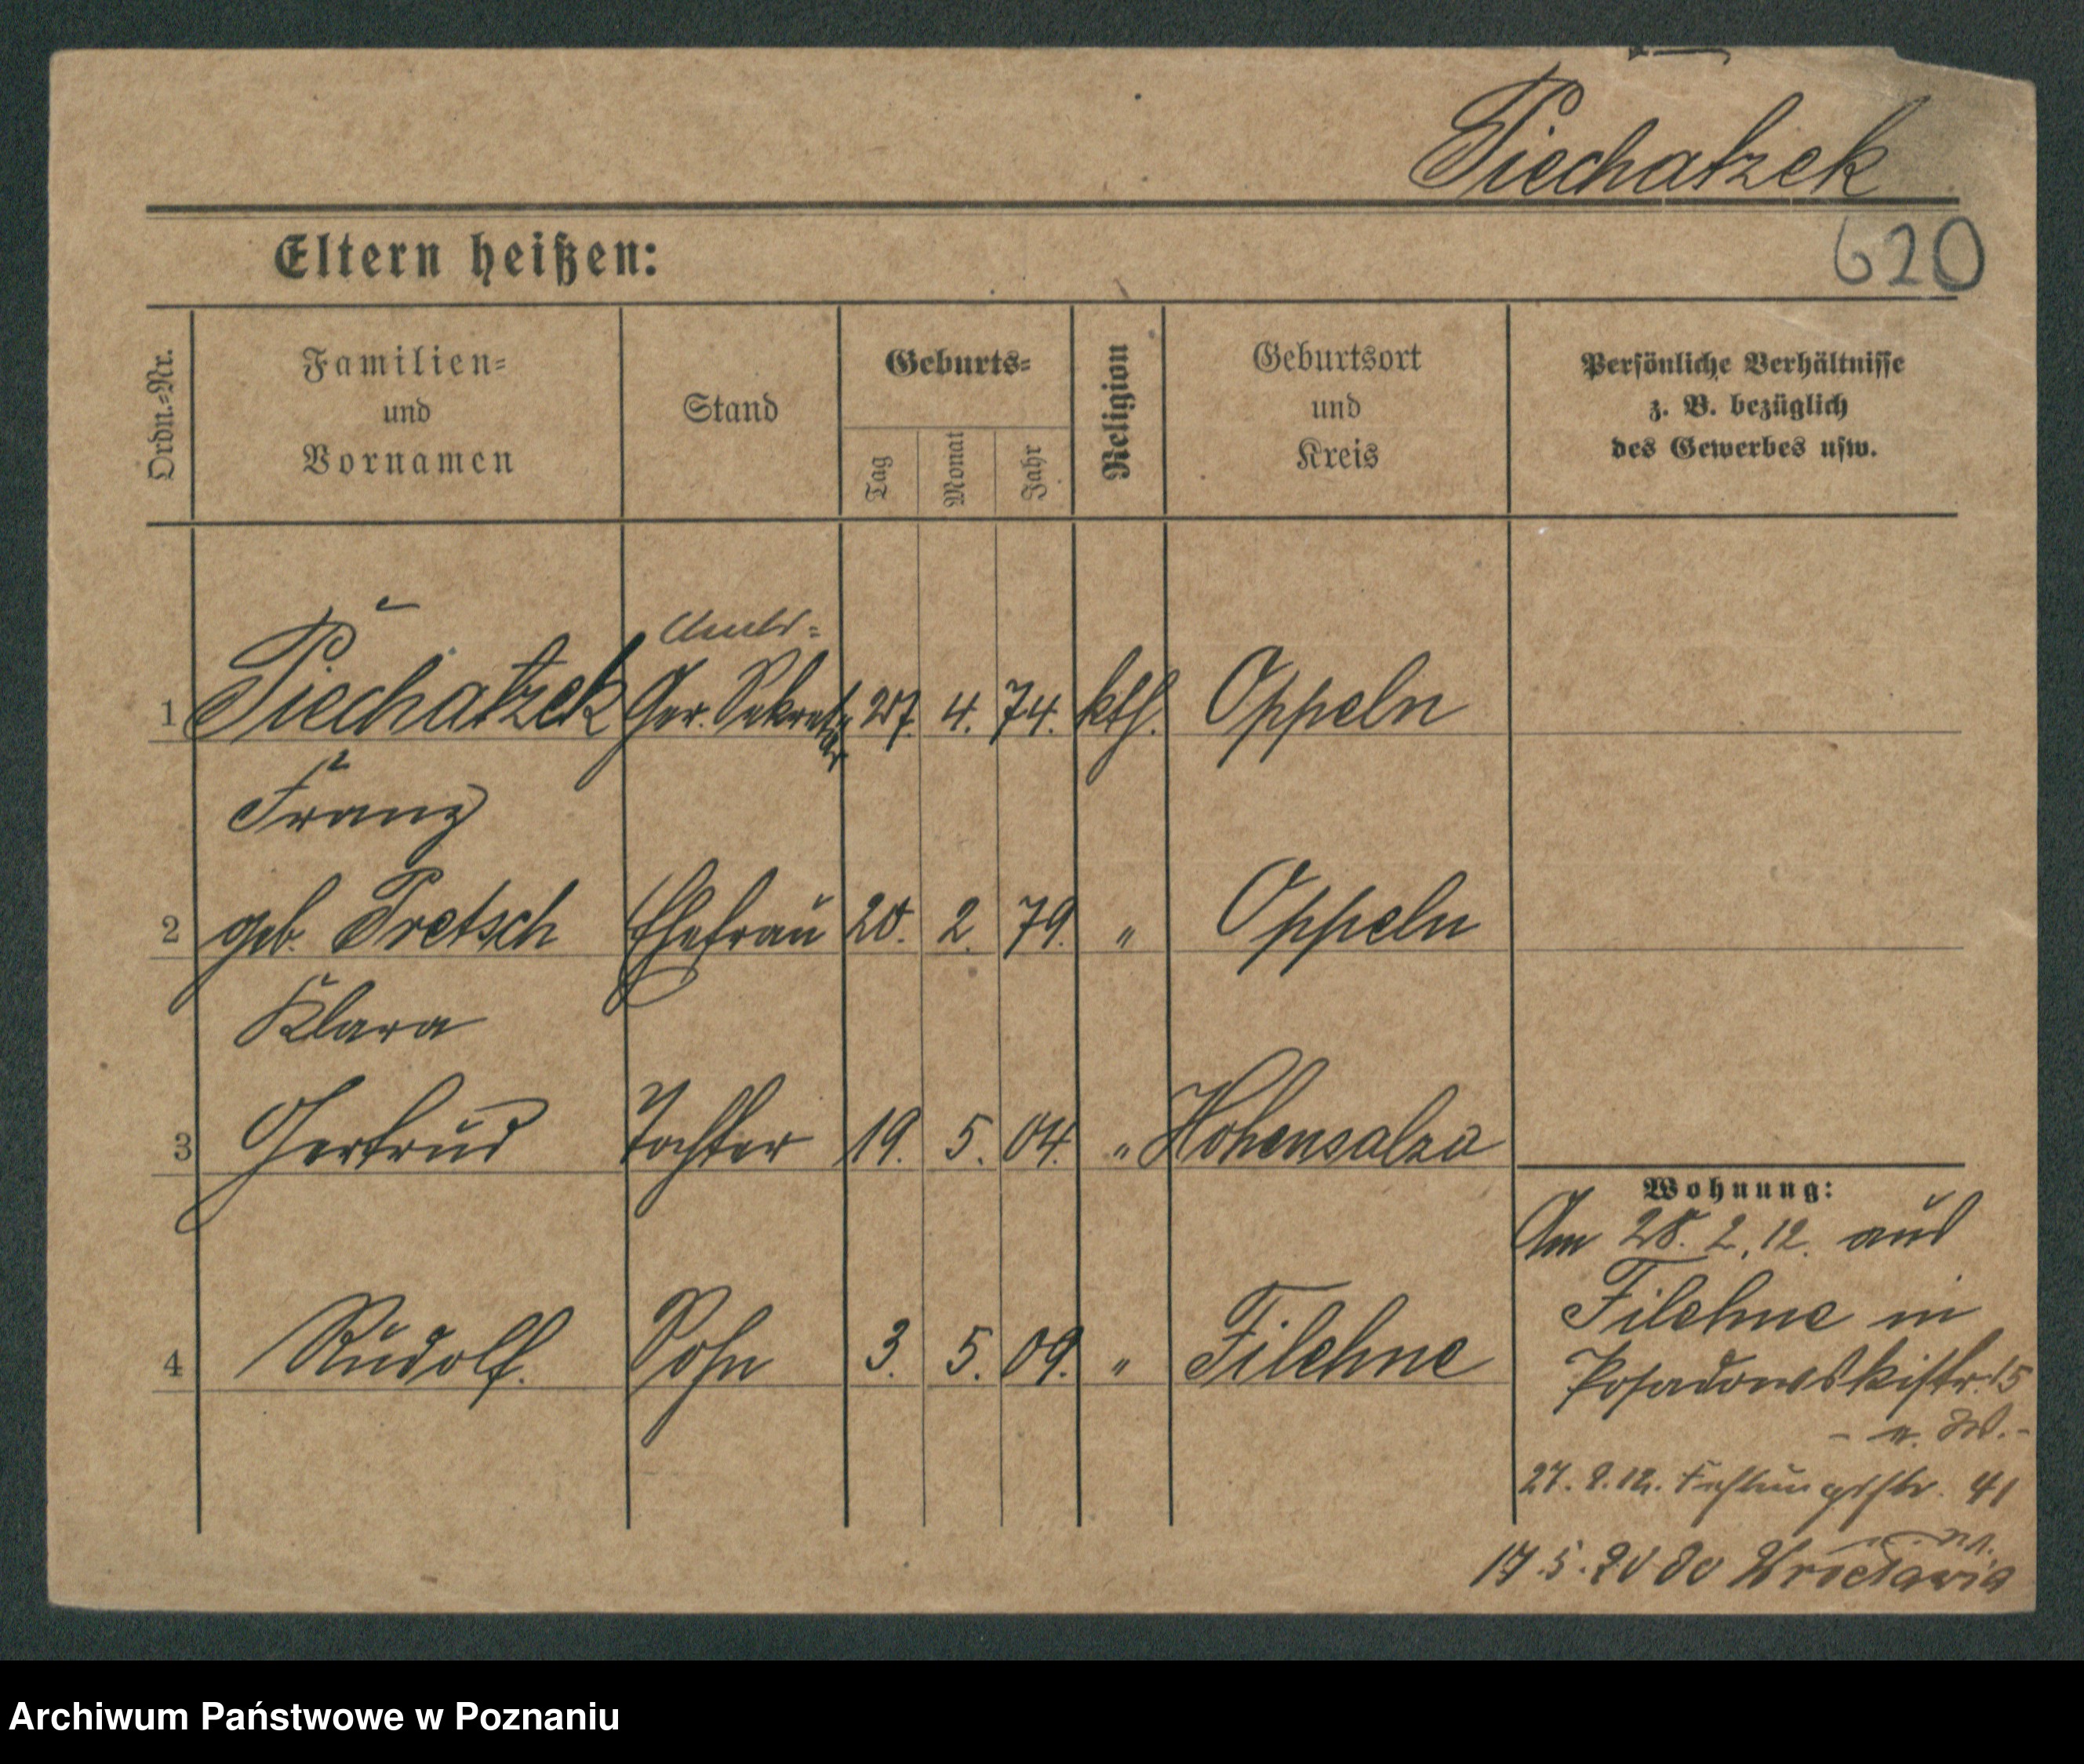 Piechatzek
620
Eltern heißen:
Ordn.-Nr.
Familien- und Vornamen
Stand
Geburts-
Tag
Monat
Jahr
Religion
Geburtsort und Kreis
Persönliche Verhältnisse
z. B. bezüglich
des Gewerbes usw.
Amts-
1 Piechatzek Ger. Sekretär 27. 4. 74. kth. Oppeln
Franz
2 geb. Pretsch Ehefrau 20. 2. 79. " Oppeln
Klara
3 Gertrud Tochter 19. 5. 04. " Hohensalza
4 Rudolf. Sohn 3. 5. 09. " Filehne
Wohnung:
Am 28. 2. 12. aus
Filehne in
Posadowskistr. 15
27. 9. 12. Festungsstr. 41
17.5.20 do Wrocławia
Archiwum Państwowe w Poznaniu